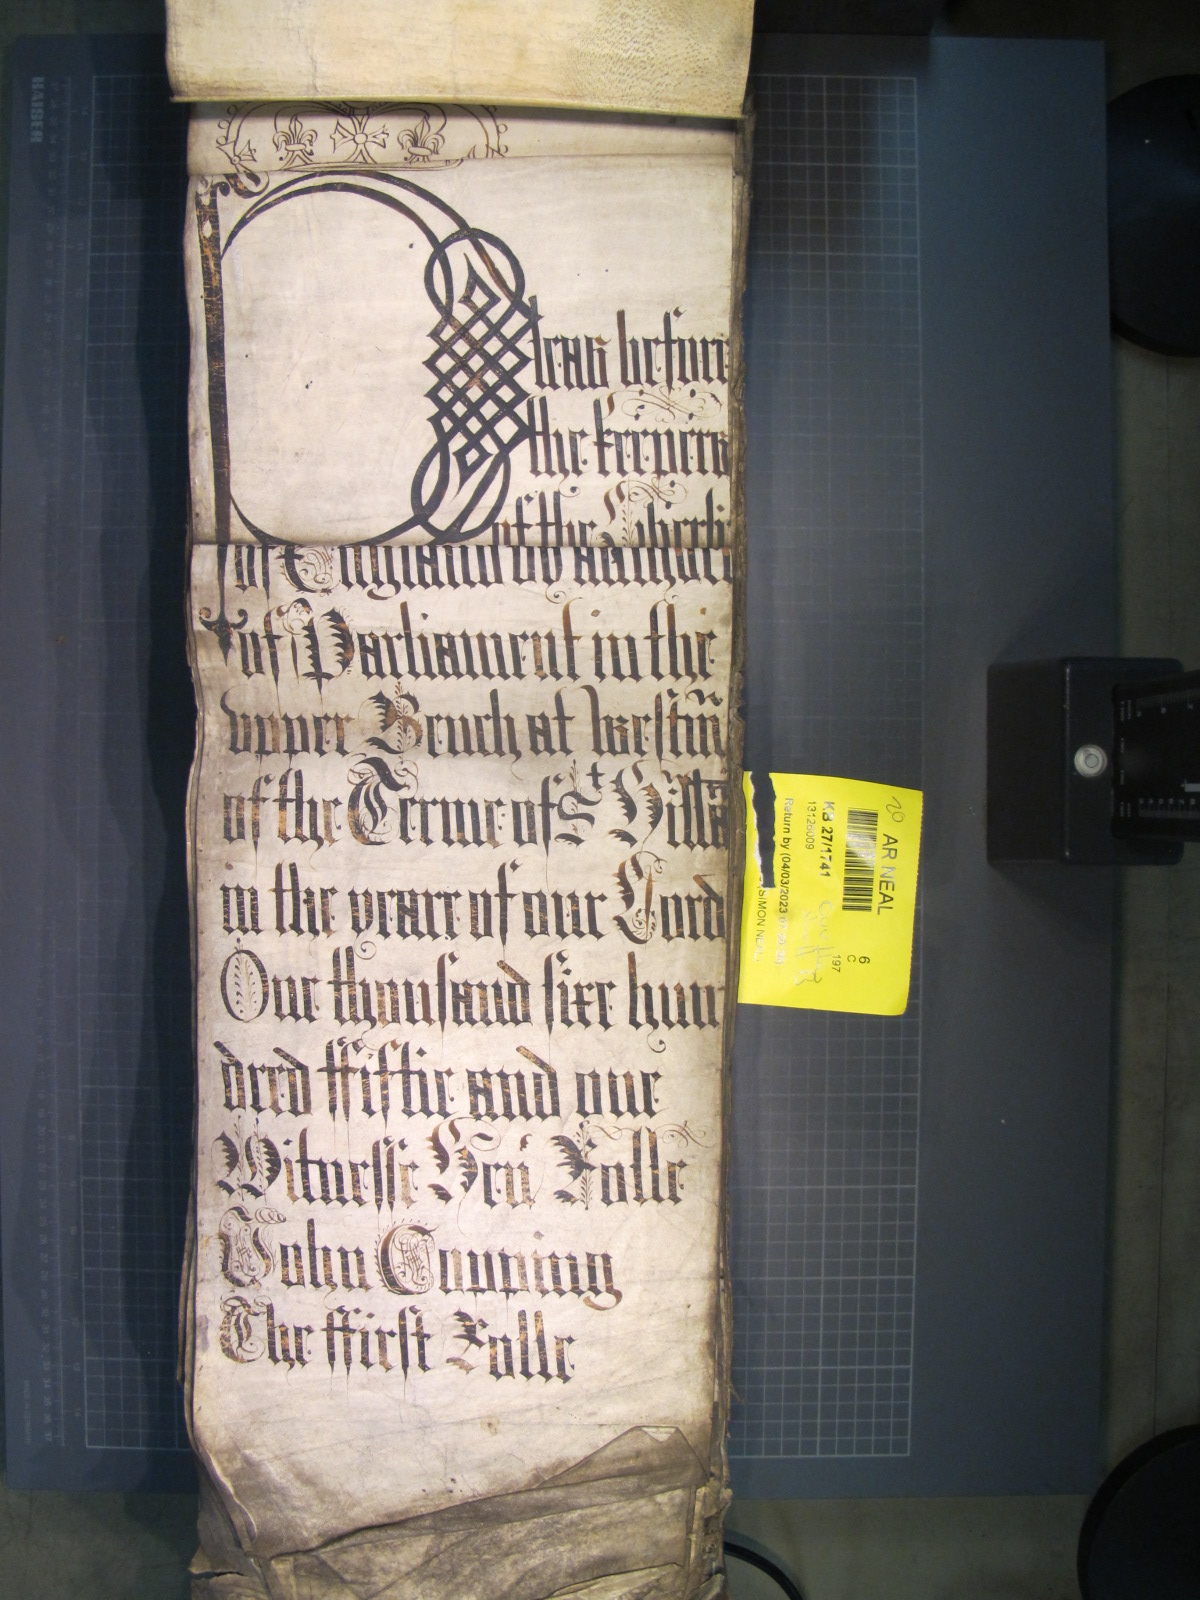 Pleas before
the keepers
of the Liberti
of England by authori
of Parliament in the
upper Bench at Westm̃
of the Terme of St Hilla
in the yeare of our Lord
One thousand sixe hun
dred ffiftie and one
Witnesse Hen Rolle
John Copping
The ffirst Rolle
AR NEAL
KB 27/1741
13126009
Return by (04/03/2023
SIMON NEAL
6
C
197
20
KAISER